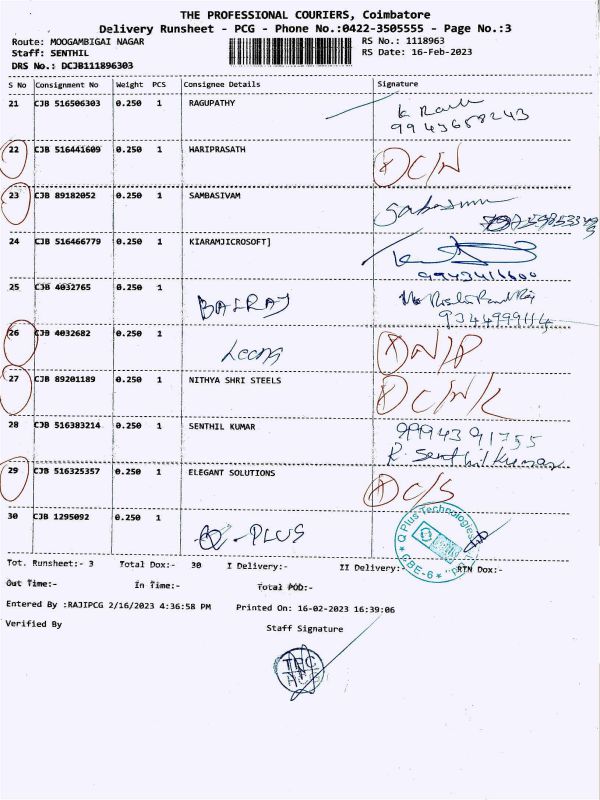 THE PROFESSIONAL COURIERS, Coimbatore
Delivery Runsheet - PCG - Phone No.:0422-3505555 - Page No.:3
Route: MOOGAMBIGAI NAGAR
RS No.: 1118963
Staff: SENTHIL
RS Date: 16-Feb-2023
DRS No.: DCJB111896303
S No Consignment No Weight PCS Consignee Details Signature
21 CJB 516506303 0.250 1 RAGUPATHY
9943658243
22 CJB 516441609 0.250 1 HARIPRASATH C/N
23 CJB 89182052 0.250 1 SAMBASIVAM
24 CJB 516466779 0.250 1 KIARAMJICROSOFT]
9943416600
25 CJB 4032765 0.250 1 BALRAJ
9344999114
26 CJB 4032682 0.250 1 Leena N/P
27 CJB 89201189 0.250 1 NITHYA SHRI STEELS C/N/L
28 CJB 516383214 0.250 1 SENTHIL KUMAR 9994391755
R. Senthilkumar
29 CJB 516325357 0.250 1 ELEGANT SOLUTIONS C/S
30 CJB 1295092 0.250 1 Q-PLUS
Q Plus Technologies
CBE-6
Tot. Runsheet:- 3 Total Dox:- 30 I Delivery:- II Delivery:- RTN Dox:-
Out Time:- In Time:- Total POD:-
Entered By :RAJIPCG 2/16/2023 4:36:58 PM Printed On: 16-02-2023 16:39:06
Verified By
Staff Signature